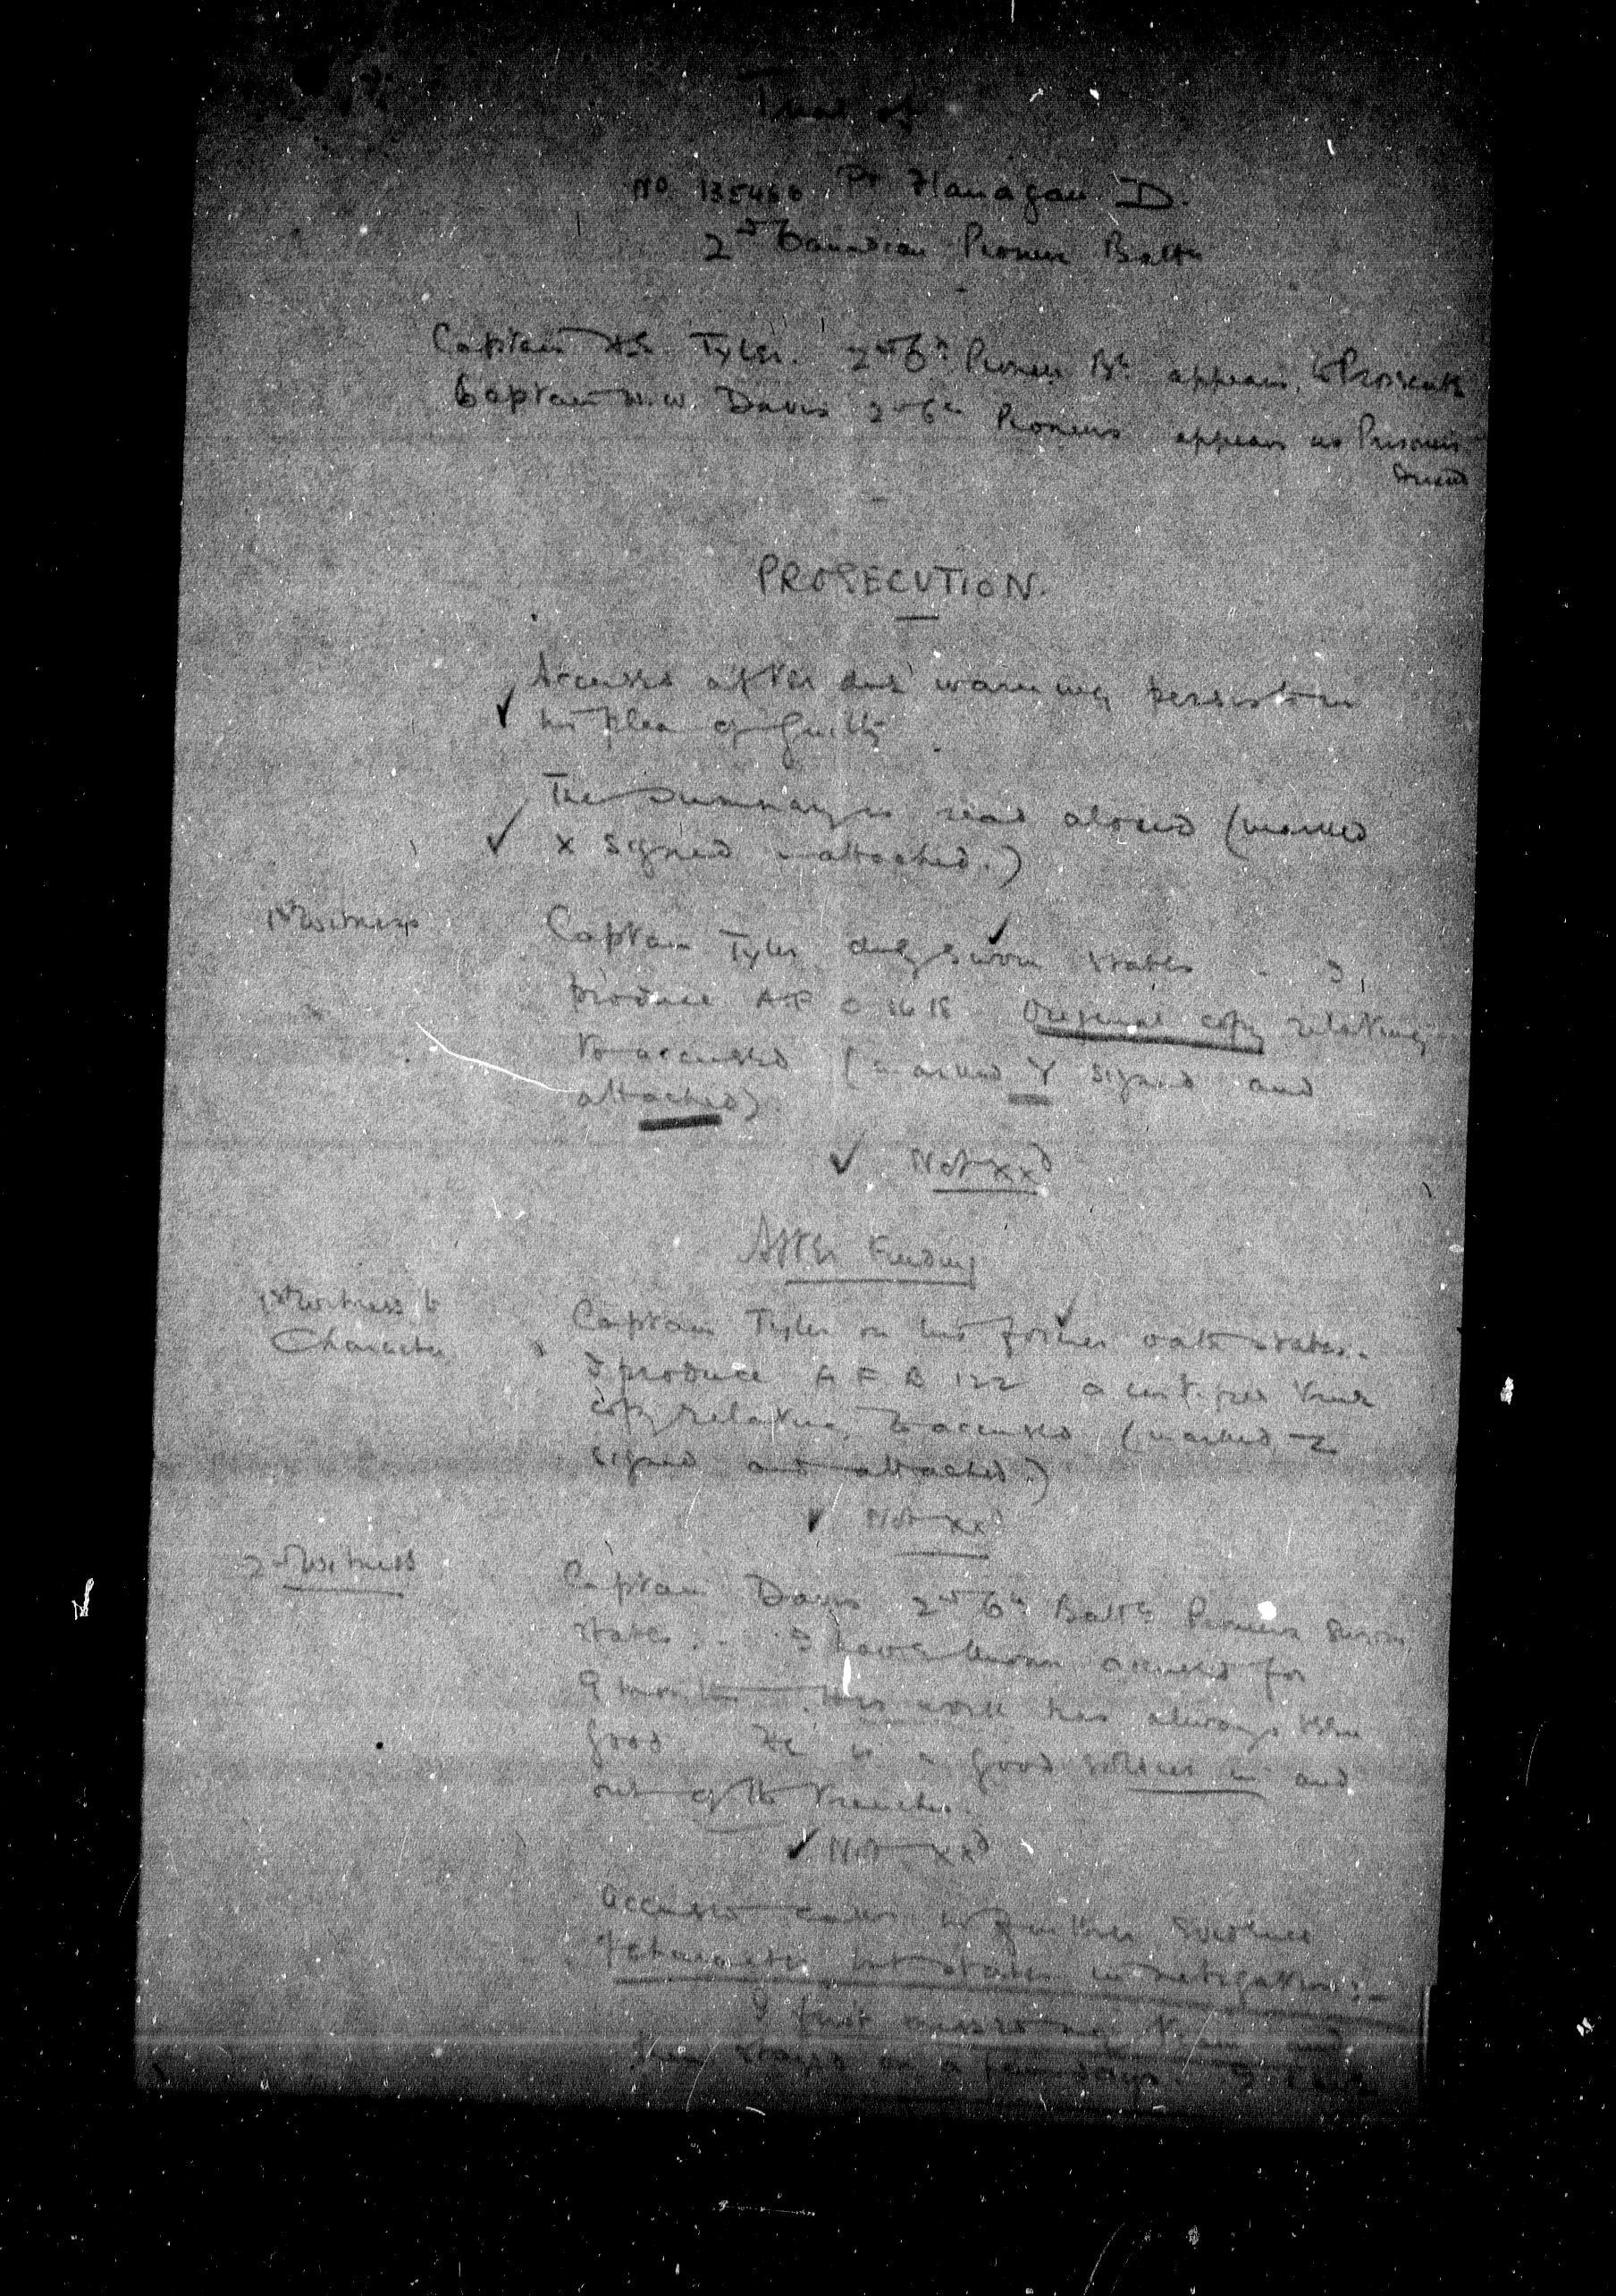 Trial of
No 135460 Pte Flanagan D.
2nd Canadian Pioneer Battn
Captain Tyler. 2nd Cn Pioneer Bn appears to Prosecute
Captain W.W. Davis 2nd Cn Pioneers appears as Prisoners
friend
PROSECUTION.
Accused after due warning persists in
his plea of Guilty
The Summary is read aloud (marked
X signed & attached.)
1st Witness
Captain Tyler duly sworn states - I
produce A.F. 1618 Original copy relating
to accused (marked Y signed and
attached)
Not xxd
After Finding
1st Witness to
Character
Captain Tyler on his former oath states.-
I produce A F B 122 a certified true
copy relative to accused (marked Z
signed and attached.)
Not xxd
2nd Witness
Captain Davis 2nd Cn Battn Pioneers sworn
states.- I have known accused for
9 months. His work has always been
good He is a good soldier in and
out of the trenches.
Not xxd
Accused calls no further evidence
of character but states in mitigation:-
I first missed my train and
then stayed on a few days. I